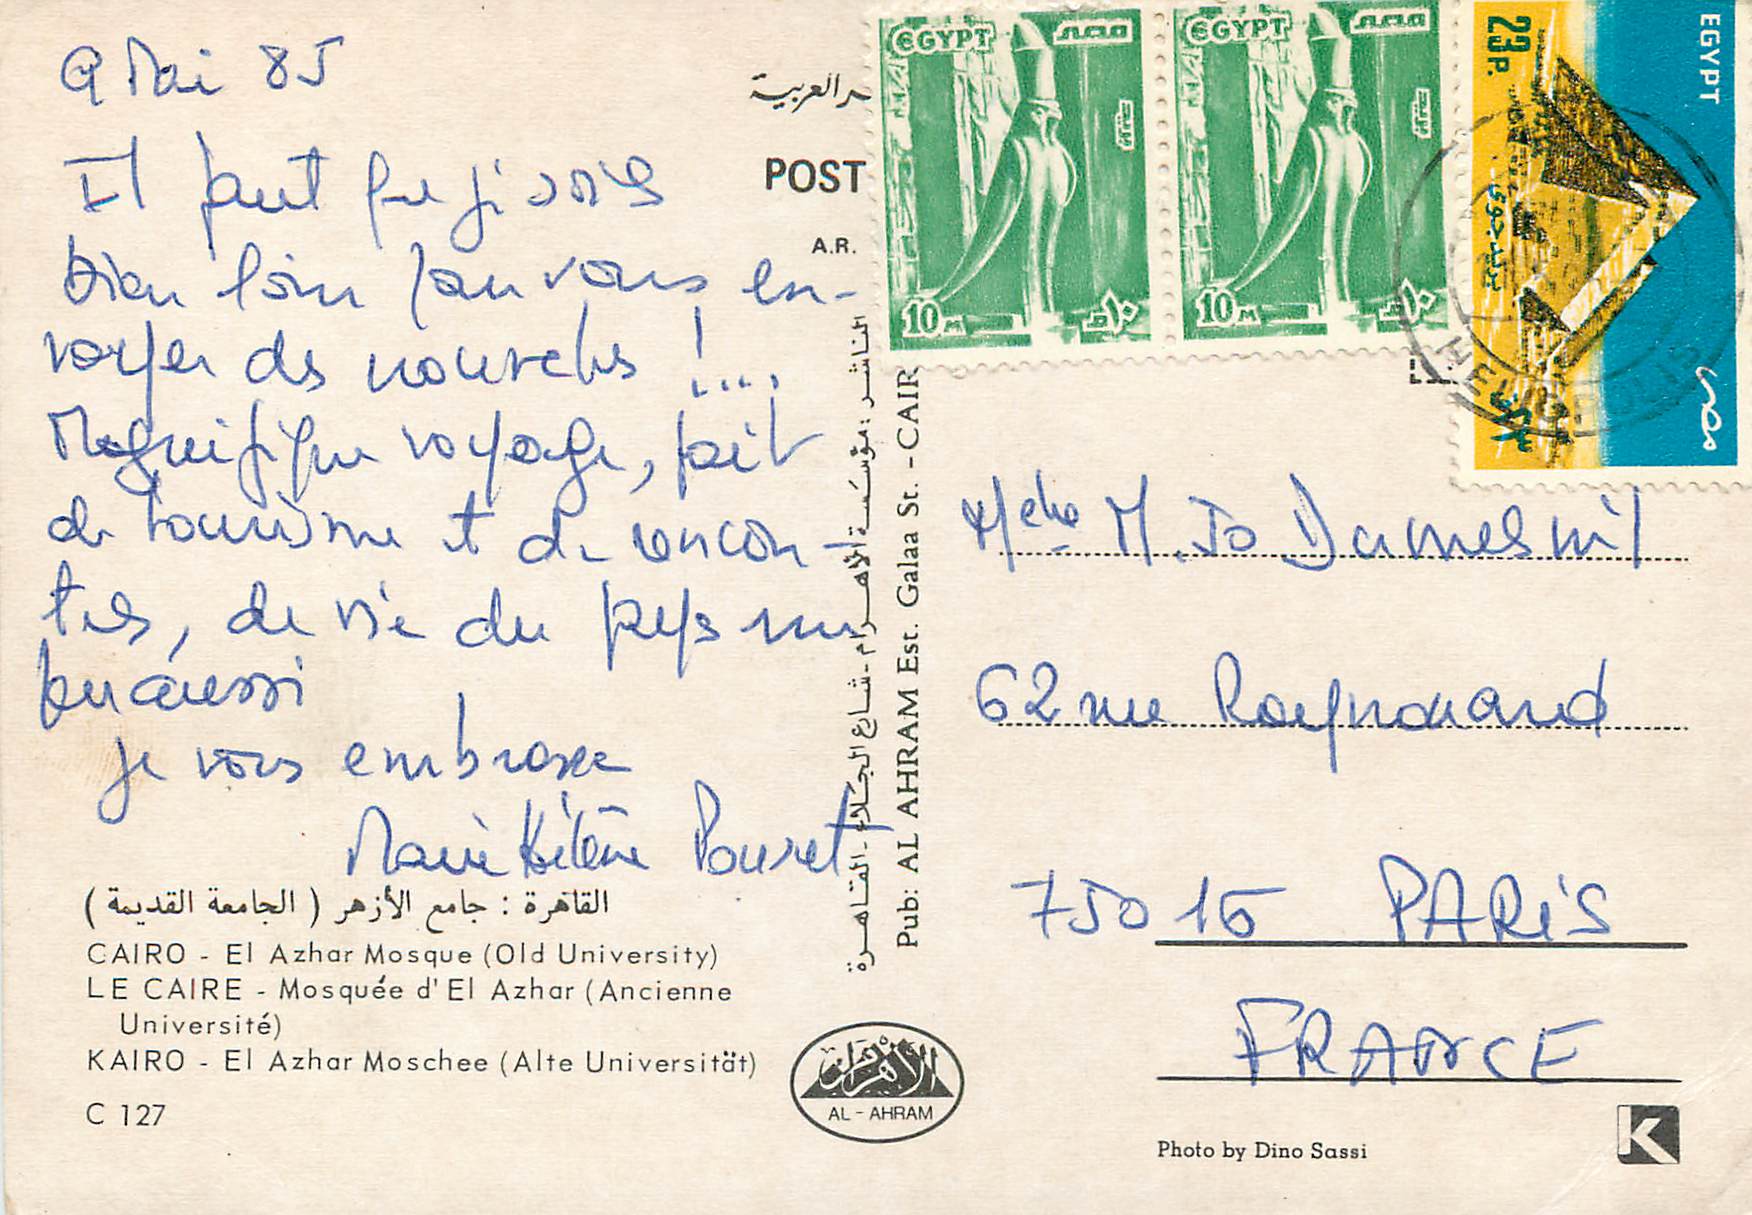 9 Mai 85
Il faut que je sois
bien loin pour vous en-
voyer des nouvelles !...
Magnifique voyage, fait
de tourisme et de rencon-
tres, de vie du pays un
peu aussi
je vous embrasse
Marie Hélène Pouret
القاهرة : جامع الأزهر ( الجامعة القديمة )
CAIRO - El Azhar Mosque (Old University)
LE CAIRE - Mosquée d'El Azhar (Ancienne
Université)
KAIRO - El Azhar Moschee (Alte Universität)
C 127
العربية
POST
A.R.
الناشر : مؤسسة الأهرام - شارع الجلاء - القاهرة
Pub: AL AHRAM Est. Galaa St. - CAIR
الأهرام
AL - AHRAM
EGYPT مصر
بريد
10 M ١٠ م
EGYPT مصر
بريد
10 M ١٠ م
EGYPT
23 P.
بريد جوى
مصر
٢٣
HELIOPOLIS
M. Jo Dumesnil
62 rue Raynouard
75016 PARIS
FRANCE
Photo by Dino Sassi
K